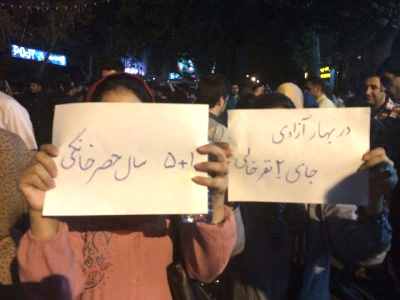 در بهار آزادی
جای ۲ نفر خالی
۵+۱ سال حصر خانگی